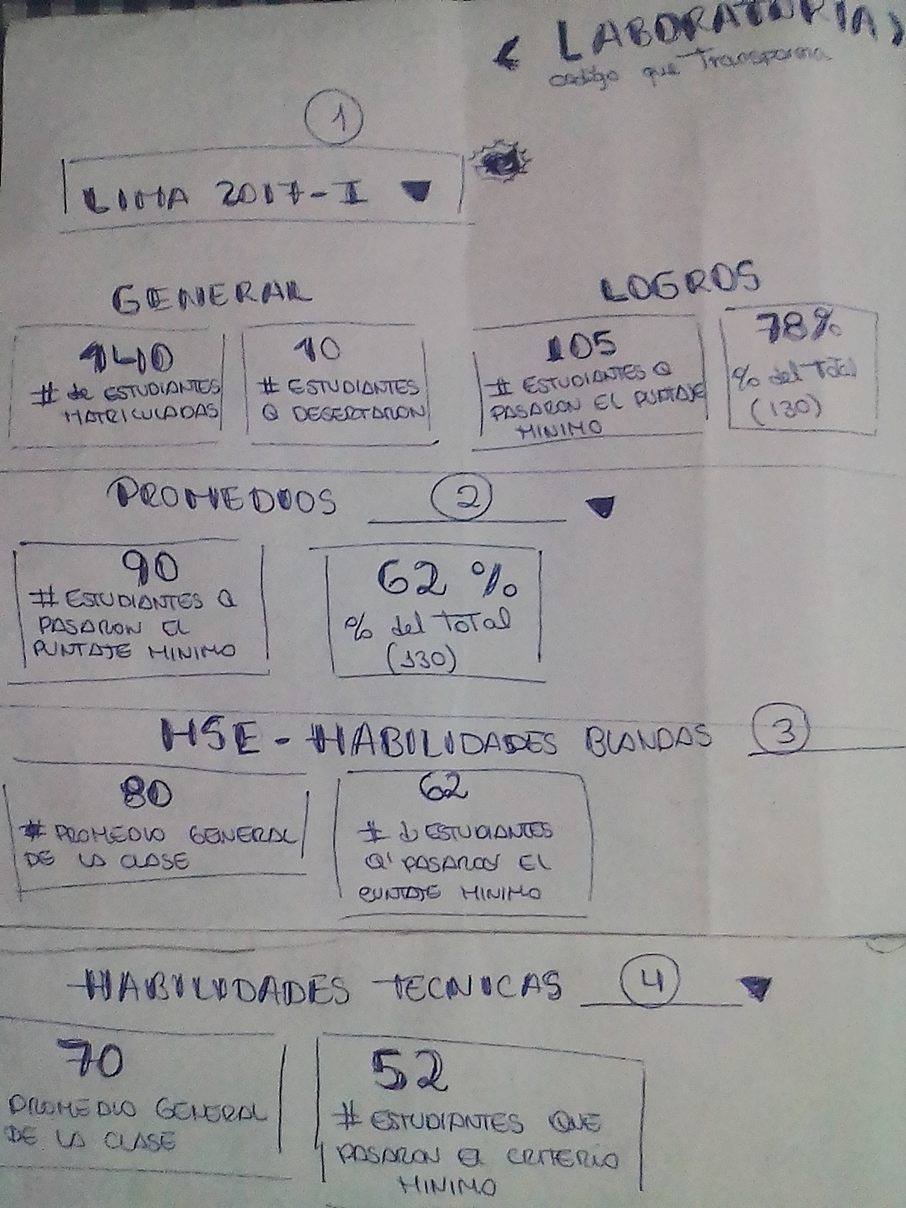 < LABORATORIA >
código que Transforma
1
LIMA 2017-I
GENERAL
LOGROS
140
# de ESTUDIANTES
MATRICULADAS
10
# ESTUDIANTES
Q DESERTARON
105
# ESTUDIANTES Q
PASARON EL PUNTAJE
MINIMO
78%
% del Total
(130)
PROMEDIOS 2
90
# ESTUDIANTES Q
PASARON EL
PUNTAJE MINIMO
62 %
% del Total
(130)
HSE - HABILIDADES BLANDAS 3
80
# PROMEDIO GENERAL
DE LA CLASE
62
# d ESTUDIANTES
Q' PASARON EL
PUNTAJE MINIMO
HABILIDADES TECNICAS 4
70
PROMEDIO GENERAL
DE LA CLASE
52
# ESTUDIANTES QUE
PASARON EL CRITERIO
MINIMO